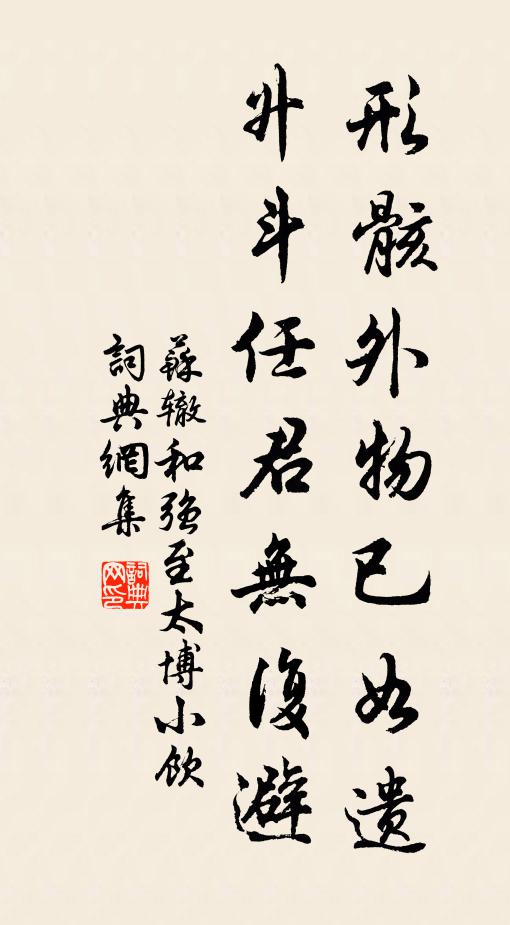 形骸外物已如遗
升斗任君無復避
蘇辙和强至太博小飲
詞典網集
詞典网印